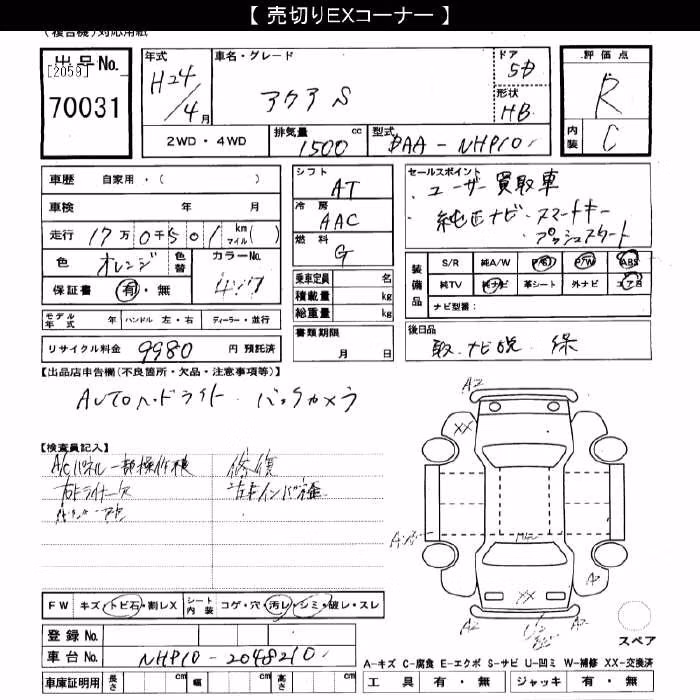 【 売切りEXコーナー 】
(複合機)対応用紙
出品No.
[2059]
70031
年式
H24/4月
車名・グレード
アクア S
ドア
5D
形状
HB
評価点
R
内装
C
2WD・4WD
排気量
1500 cc
型式
DAA-NHP10
車歴 自家用・( )
車検 年 月
走行 17万0千501 km マイル( )
色 オレンジ 色替 カラーNo.
保証書 有・無
モデル年式 年 ハンドル 左・右 ディーラー・並行
リサイクル料金 9980 円 預託済
シフト
AT
冷房
AAC
燃料
G
乗車定員 名
積載量 kg
総重量 kg
書類期限
月 日
セールスポイント
・ユーザー買取車
・純正ナビ・スマートキー
・プッシュスタート
装備品
S/R 純A/W P/S P/W ABS
純TV 純ナビ 革シート 外ナビ エアB
ナビ型番:
後日品
取・ナビ説 保
【出品店申告欄(不良箇所・欠品・注意事項等)】
AUTOヘッドライト・バックカメラ
【検査員記入】
A/Cパネル一部操作 修復
右ドライナー欠
A2
XX
XX
A2
A2
FW キズ・トビ石・割レX シート内装 コゲ・穴・汚レ・シミ・破レ・スレ
スペア
登録No.
車台No. NHP10-2048210
車庫証明用 長さ cm 幅 cm 高さ cm
A-キズ C-腐食 E-エクボ S-サビ U-凹ミ W-補修 XX-交換済
工具 有・無 ジャッキ 有・無